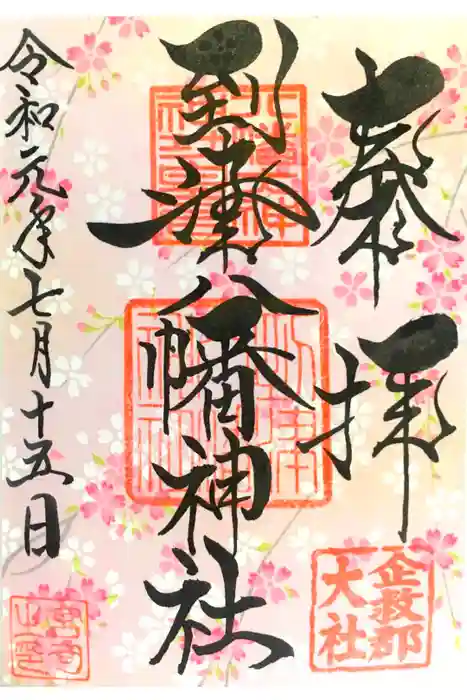 奉拝
到津八幡神社
企救郡
大社
令和元年七月十五日